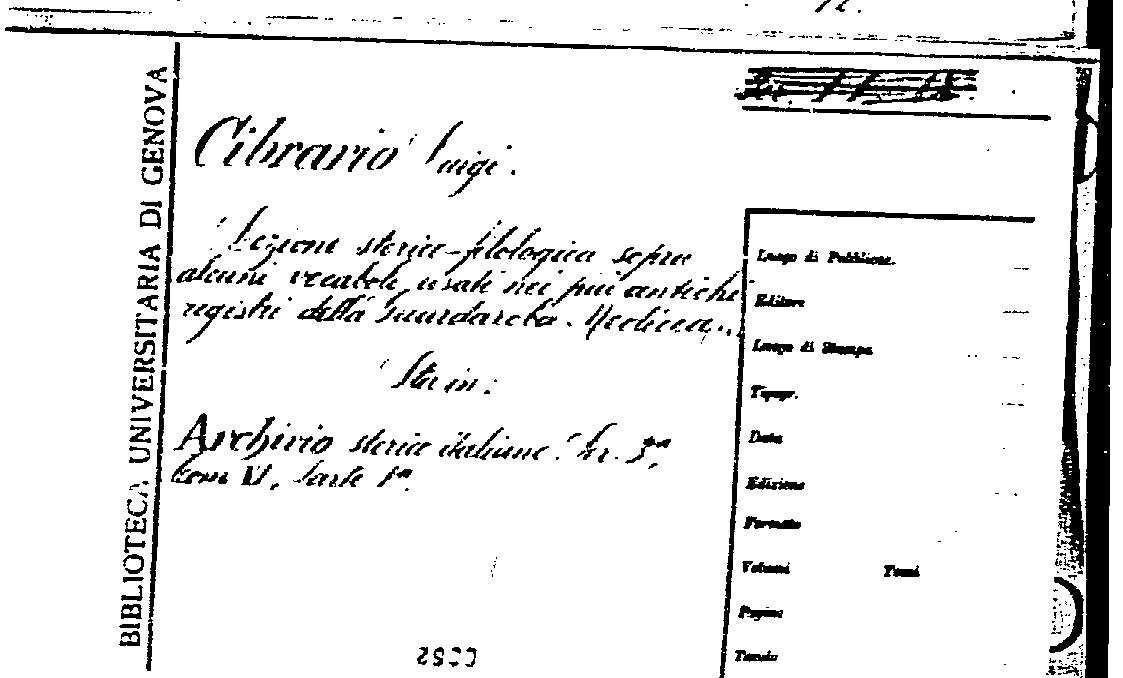 BIBLIOTECA UNIVERSITARIA DI GENOVA
Cibrario Luigi.
Lezione storico-filologica sopra
alcuni vocaboli usati nei più antichi
registri della Guardaroba Medicea...
Sta in:
Archivio storico italiano. Ser. 3ª,
Tom VI, Parte 1ª.
Luogo di Pubblicaz.
Editore
Luogo di Stampa
Tipogr.
Data
Edizione
Formato
Volumi Tomi
Pagine
Tavole